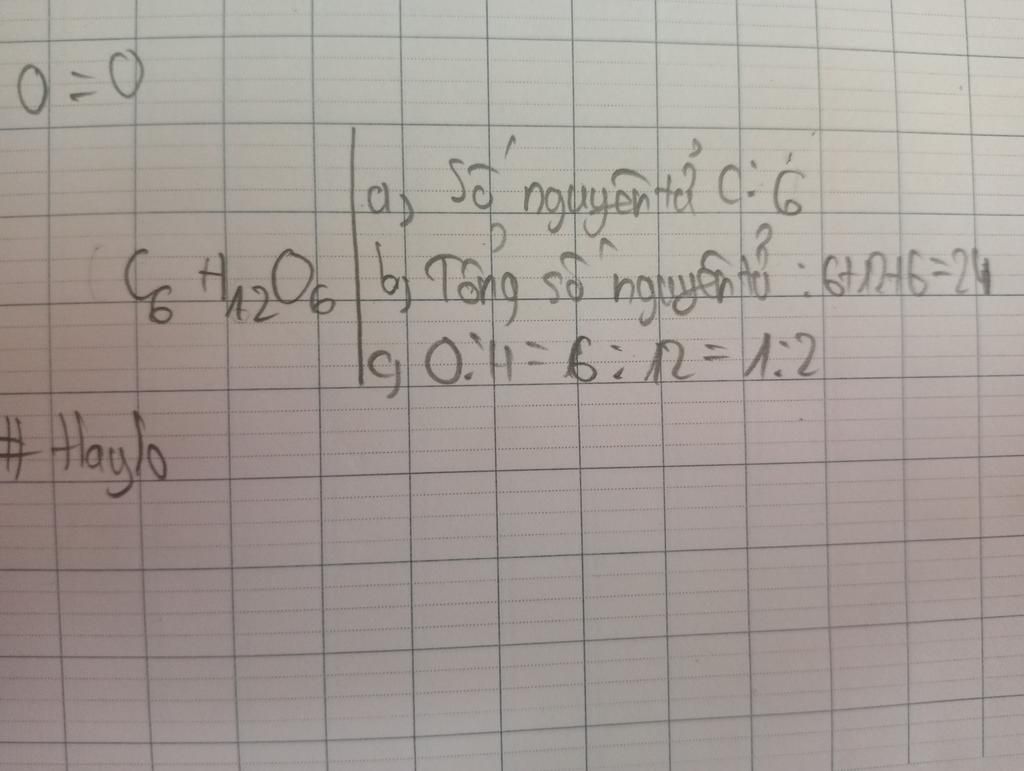 O=O
a) Số nguyên tử C: 6
C₆H₁₂O₆ b) Tổng số nguyên tử : 6+12+6=24
c) O:H = 6:12 = 1:2
# Haylo